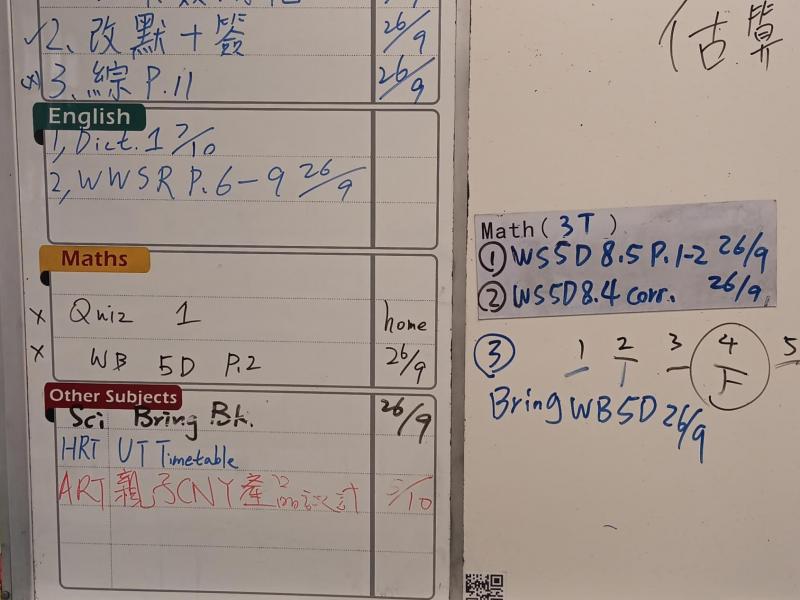 2、改默+簽 26/9
3、綜 P.11 26/9
English
1, Dict. 1 7/10
2, WWSR P.6-9 26/9
Maths
x Quiz 1 home
x WB 5D P.2 26/9
Other Subjects
Sci Bring Bk. 26/9
HRT UT Timetable
ART 親子CNY產品設計 /10
估算
Math( 3T )
① WS5D 8.5 P.1-2 26/9
② WS5D8.4 corr. 26/9
③ 1 2 3 4 5
Bring WB5D 26/9